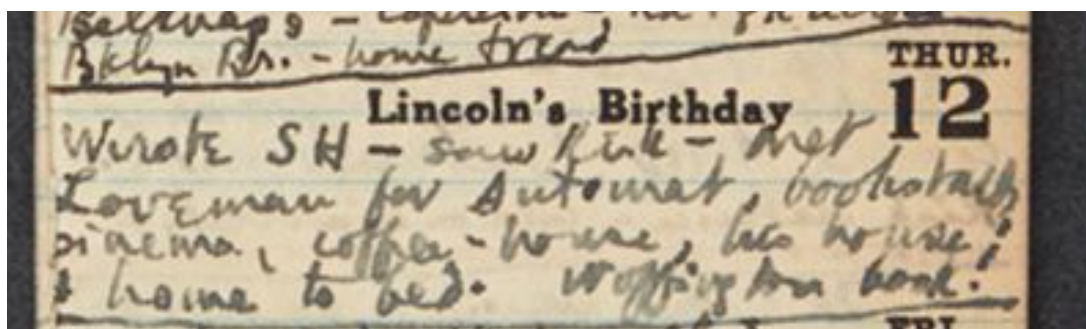 Bklyn Br. - home
THUR.
12
Lincoln's Birthday
Wrote SH - saw Kirk - met
Loveman for Automat, bookstalls
cinema, coffee-house, his house,
& home to bed. Woffington book!
FRI.